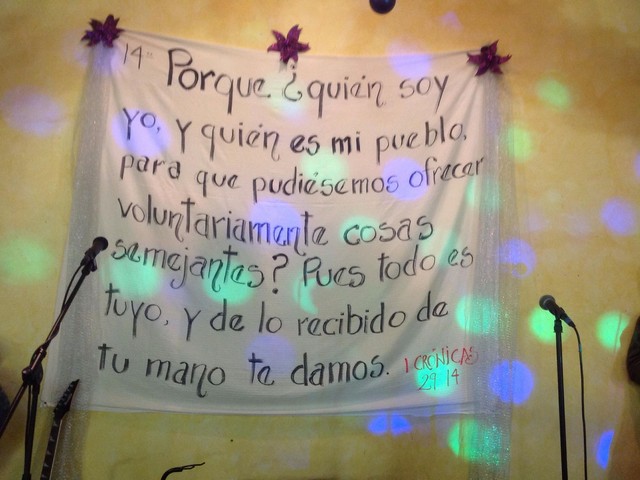 14" Porque ¿quién soy
yo, y quién es mi pueblo,
para que pudiésemos ofrecer
voluntariamente cosas
semejantes? Pues todo es
tuyo, y de lo recibido de
tu mano te damos.
1 CRÓNICAS
29 14